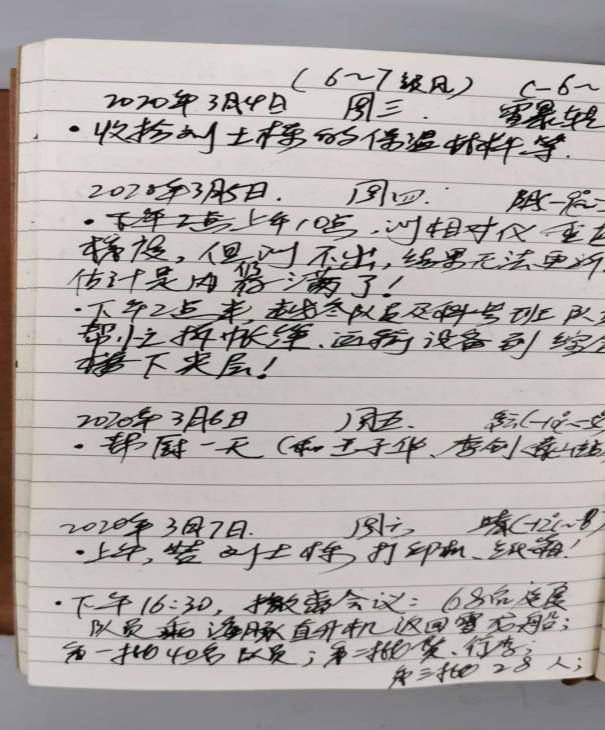 (6~7级风) (-6~
2020年3月4日 周三. 雪暴转
·收拾刘士栋的保温材料等.
2020年3月5日. 周四. 阴(-9°~
·下午2点上午10点,测相对仪
楼设,但测不出,结果无法更新
估计是内存满了!
·下午2点半,越冬队员及科考班队
帮忙拆帐篷、运输设备到综合
楼下夹层!
2020年3月6日 周五. (-10°~
·帮厨一天(和王子华、李剑
2020年3月7日. 周六 晴(-12°~8
·上午,装刘士栋打印机、纸箱!
·下午16:30,撤离会议:68名度夏
队员乘海豚直升机返回雪龙船;
第一批40名队员;第二批货、行李;
第三批28人;